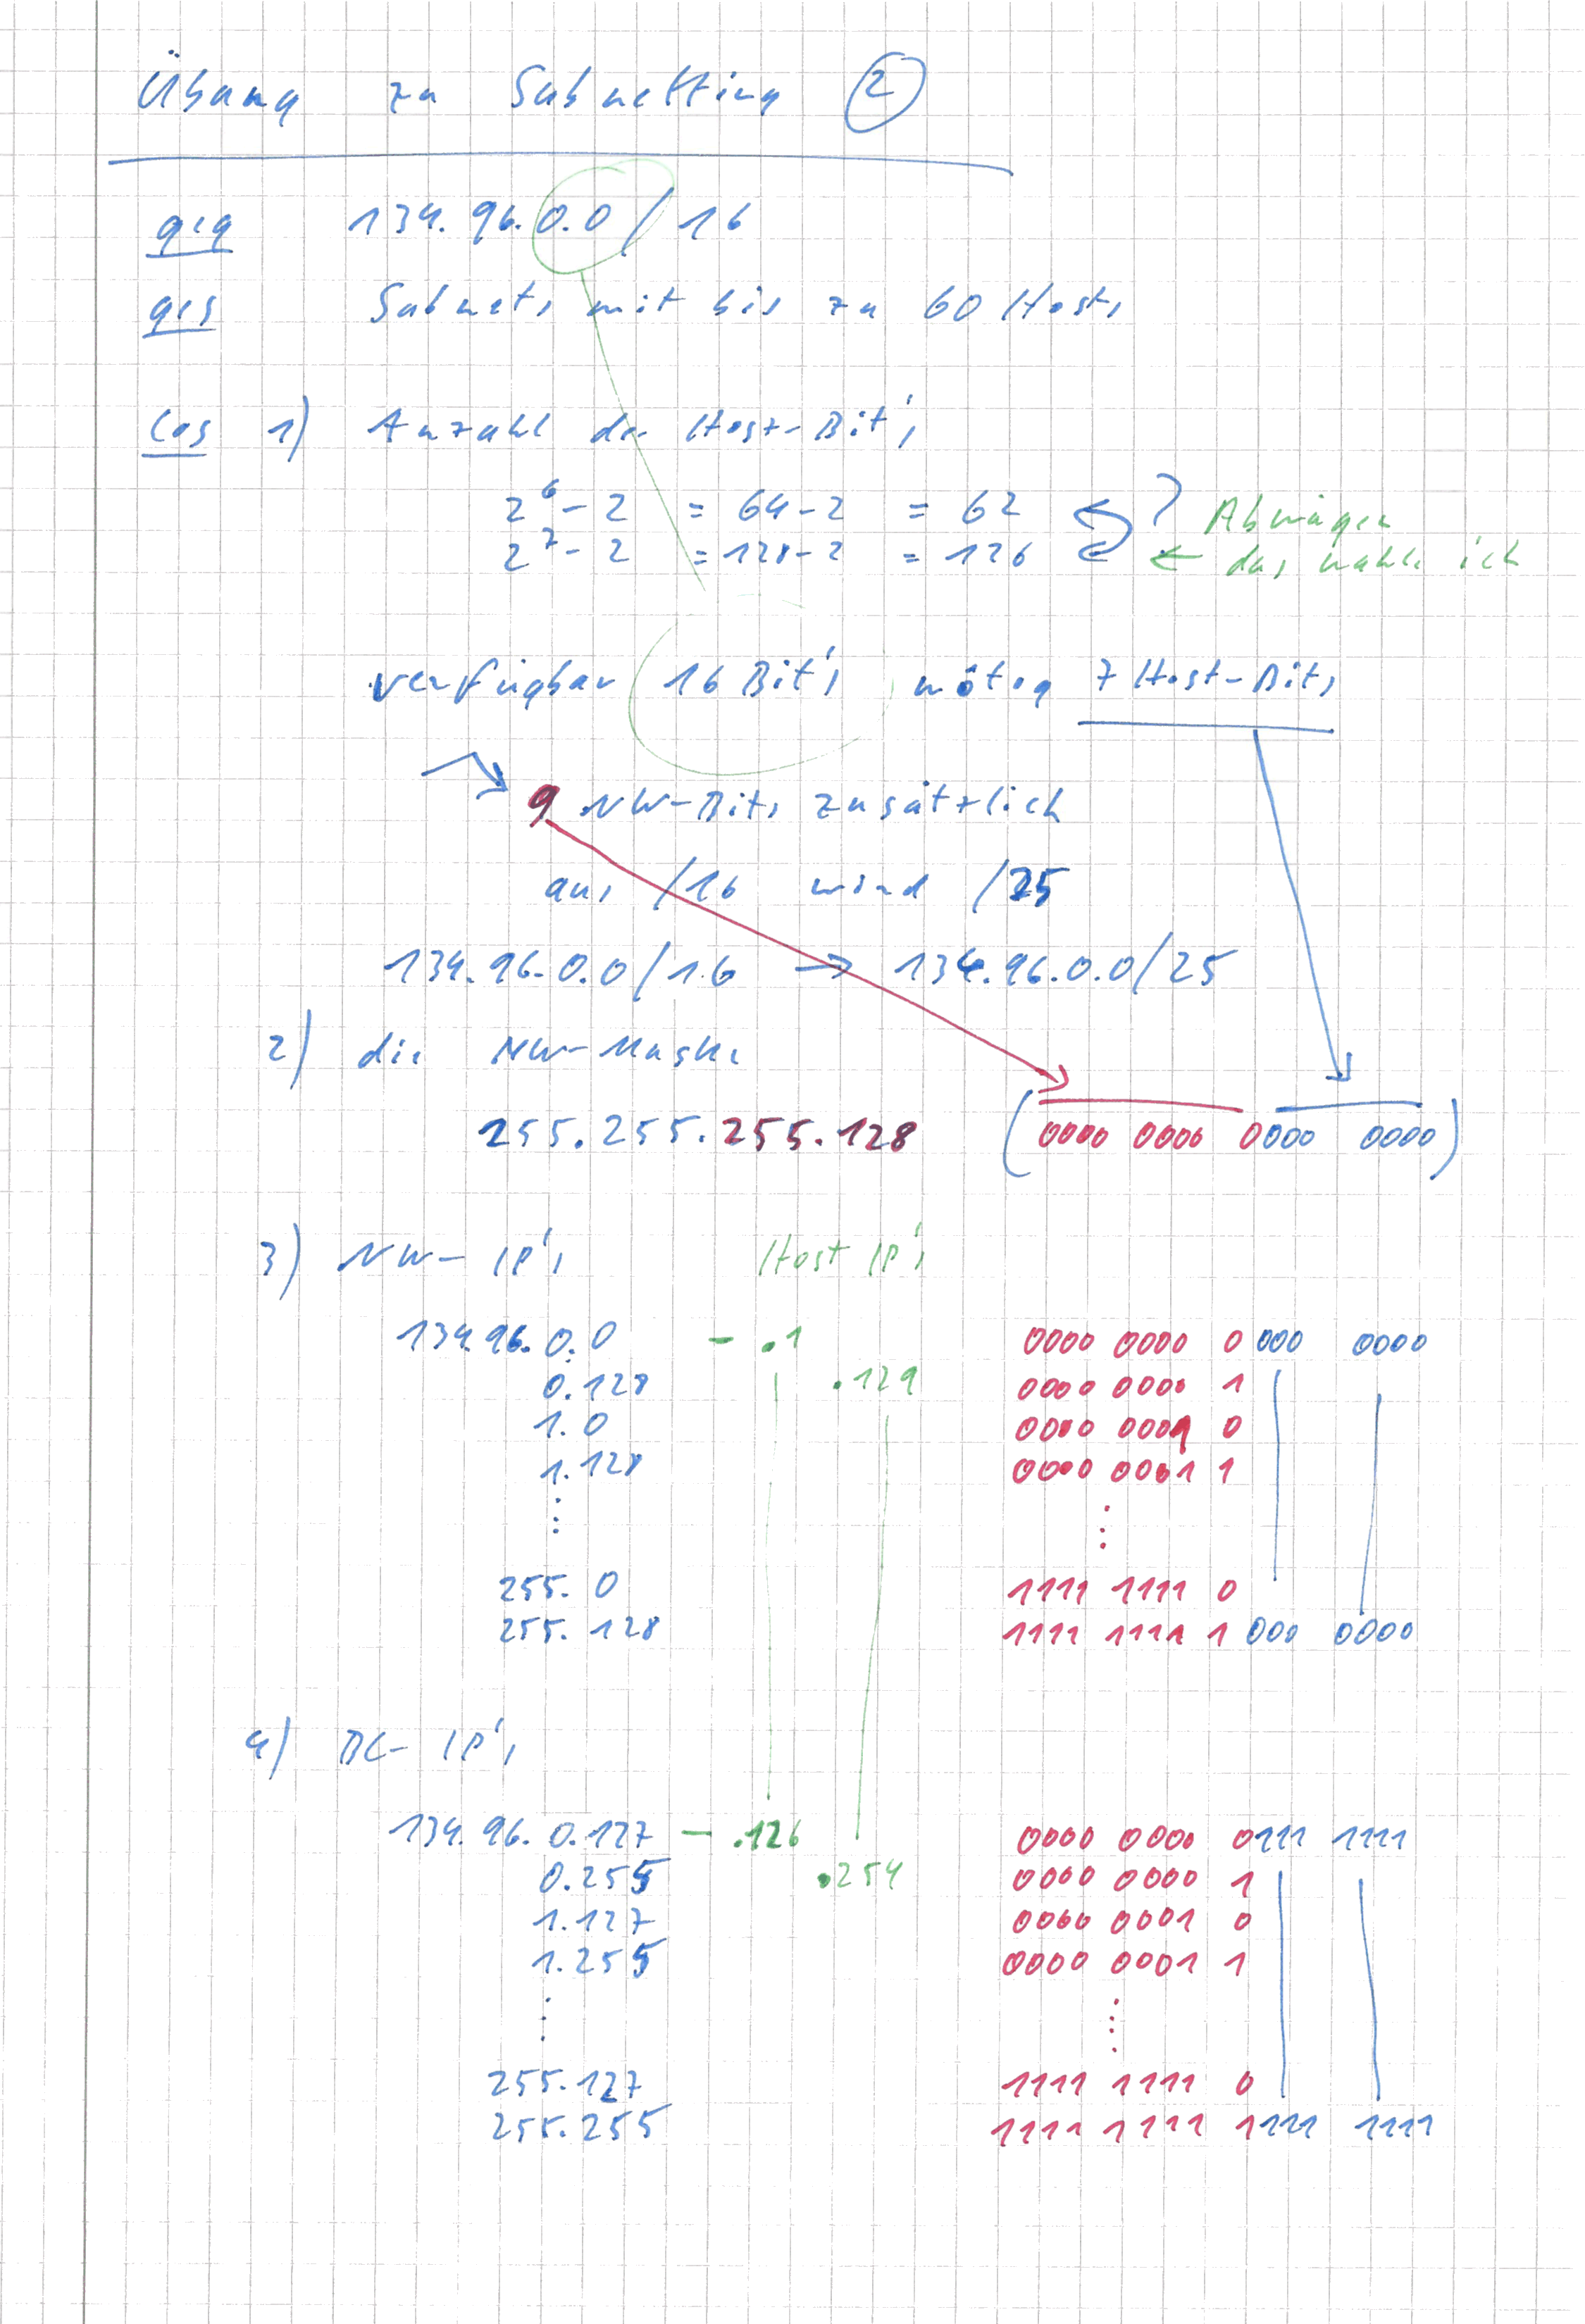 Übung zu Subnetting ②
geg 134.96.0.0/16
ges Subnets mit bis zu 60 Hosts
Lös 1) Anzahl der Host-Bit's
2^6 - 2 = 64-2 = 62 ? Abwägen
2^7 - 2 = 128-2 = 126 ← das wähle ich
verfügbar 16 Bit's nötig 7 Host-Bits
9 NW-Bits zusätzlich
aus /16 wird /25
134.96.0.0/16 → 134.96.0.0/25
2) die NW-Maske
255.255.255.128 (0000 0000 0000 0000)
3) NW-IP's Host IP's
134.96.0.0 - .1 0000 0000 0000 0000
0.128 .129 0000 0000 1
1.0 0000 0001 0
1.128 0000 0001 1
⋮ ⋮
255.0 1111 1111 0
255.128 1111 1111 1000 0000
4) BC-IP's
134.96.0.127 - .126 0000 0000 0111 1111
0.255 .254 0000 0000 1
1.127 0000 0001 0
1.255 0000 0001 1
⋮ ⋮
255.127 1111 1111 0
255.255 1111 1111 1111 1111